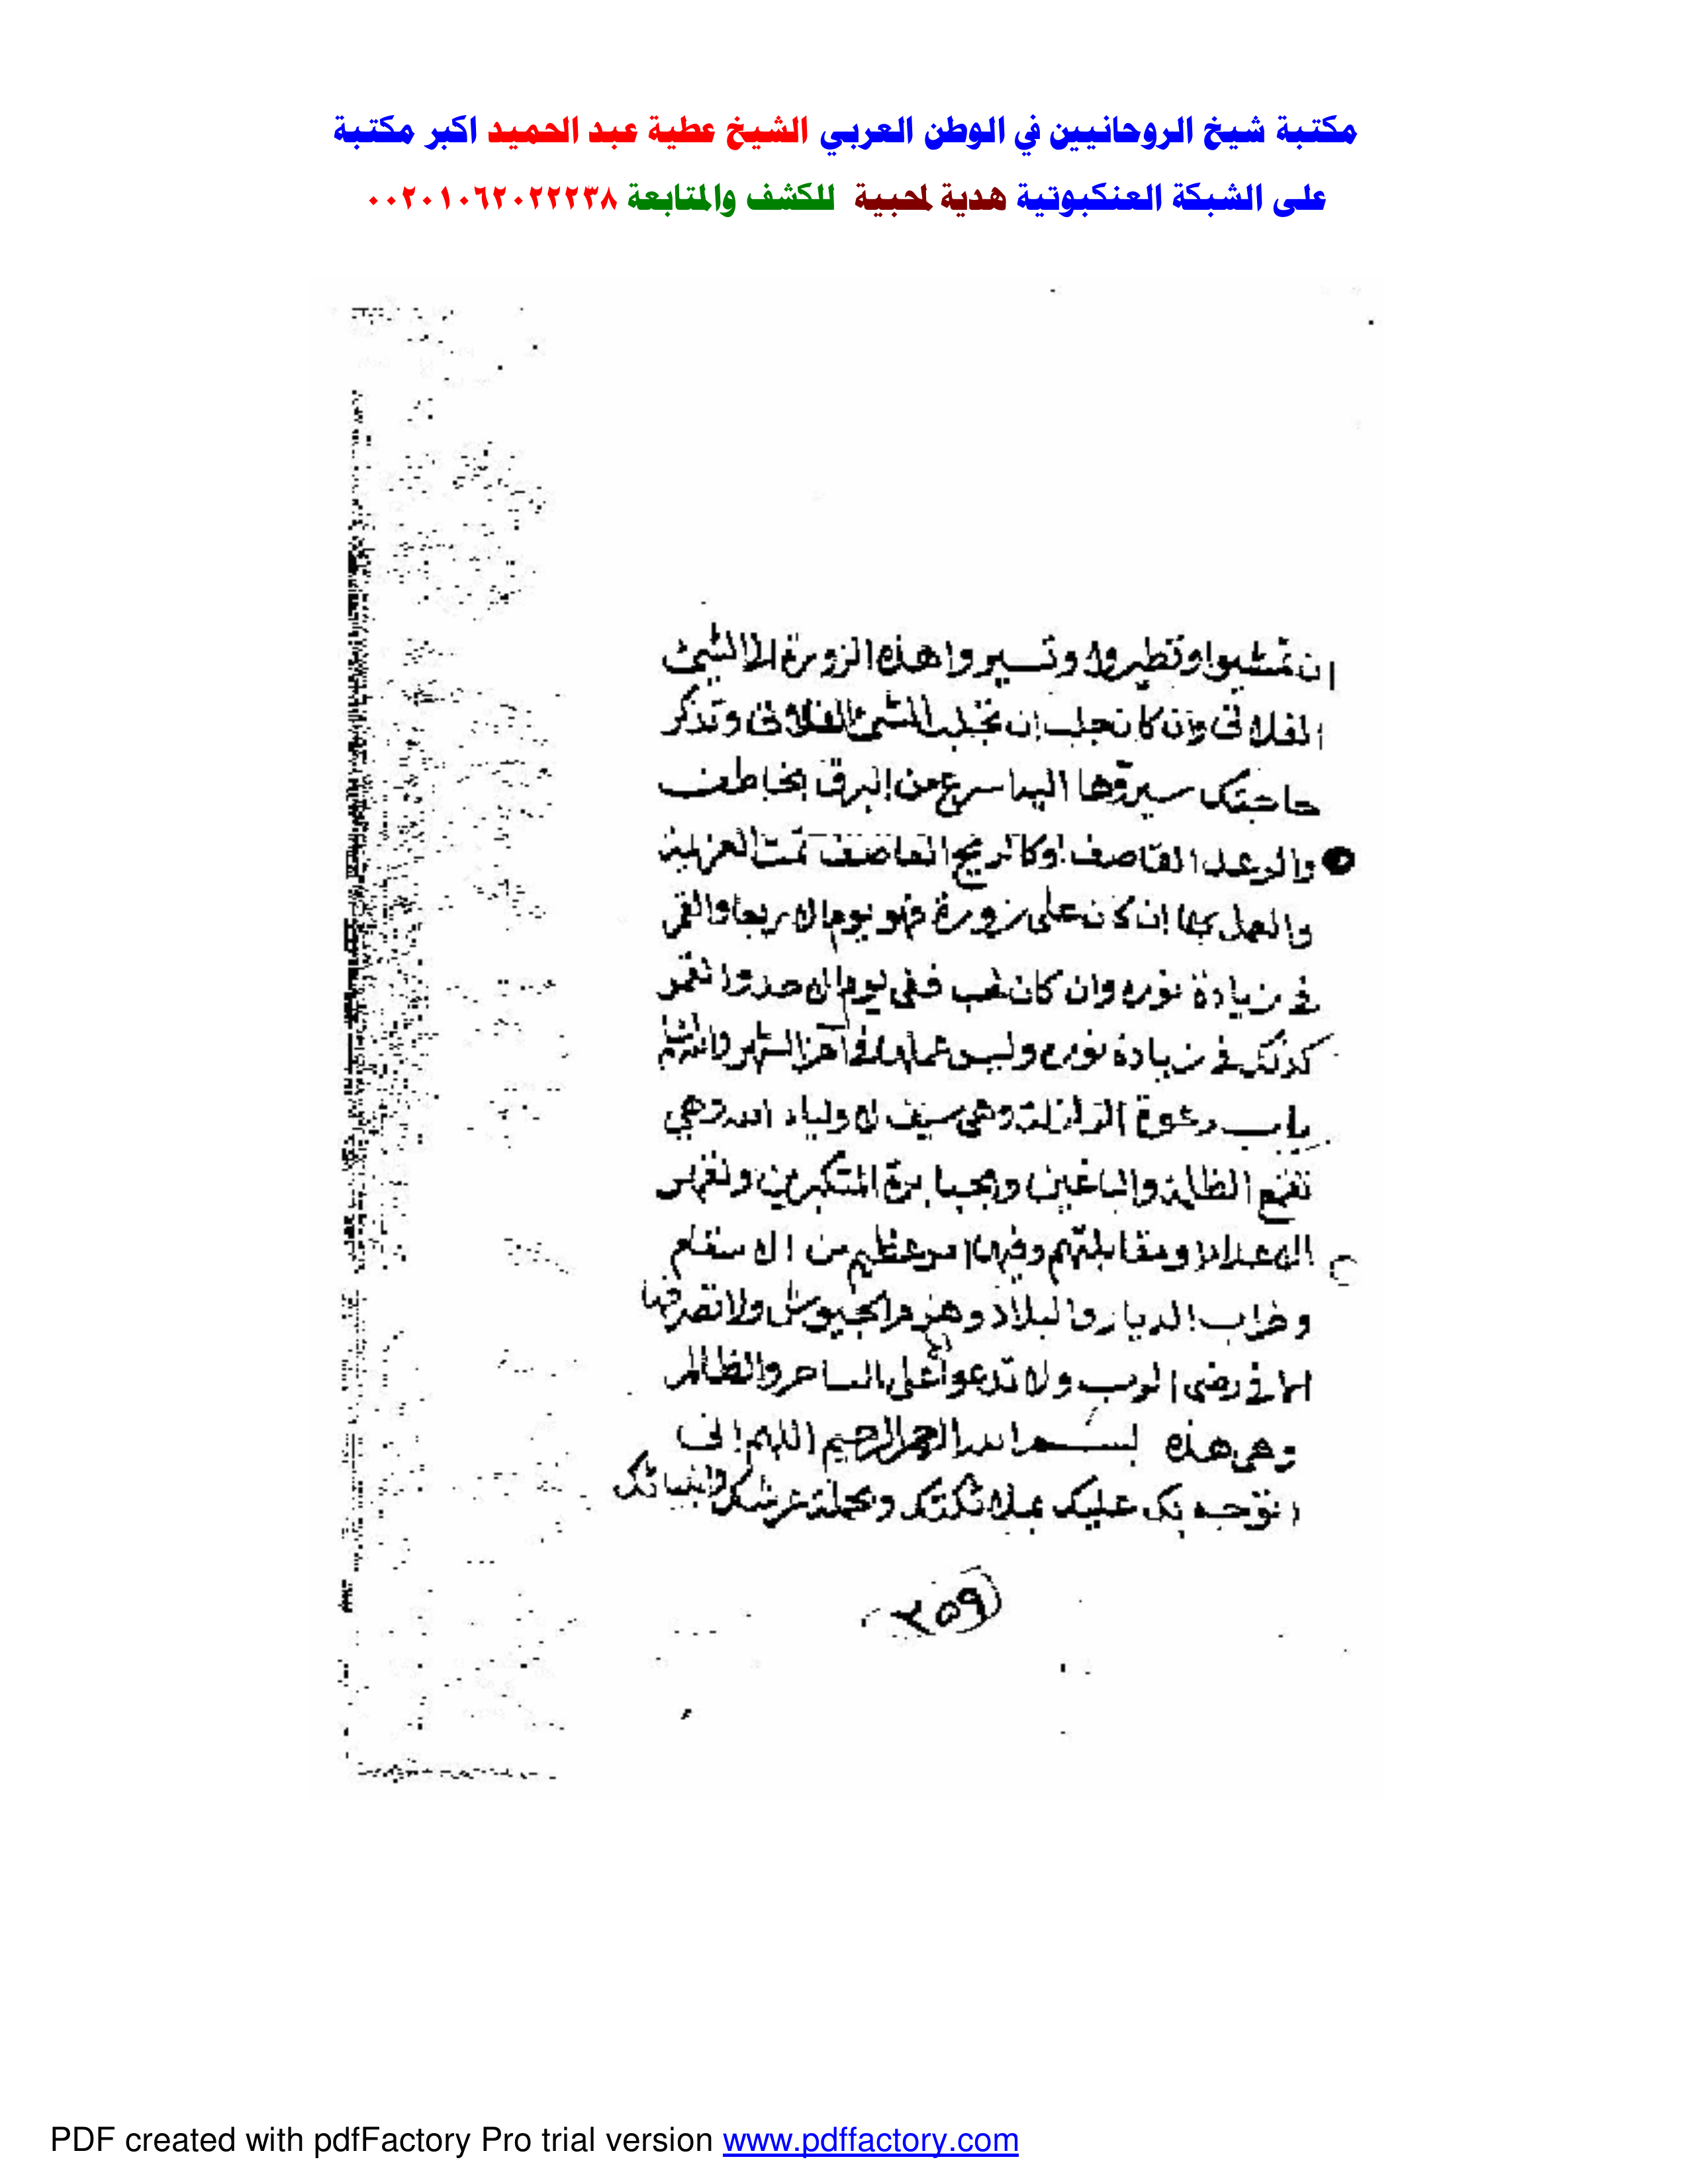 مكتبة شيخ الروحانيين في الوطن العربي الشيخ عطية عبد الحميد اكبر مكتبة
على الشبكة العنكبوتية هدية لمحبية للكشف والمتابعة ٠٠٢٠١٠٦٢٠٢٢٢٣٨
ان تمشوا وتطيروا وتسيروا هذه الزورة الا الشئ
الفلانى وان كان جلب ان تجلب الشئ الفلانى وتذكر
حاجتك سيروها اليه اسرع من البرق الخاطف
والرعد القاصف اوكالريح العاصف تمت العزيمة
والعمل بها ان كان على زورة فهو يوم الاربعا والقمر
فى زيادة نوره وان كان ففى يوم الاحد والقمر
كذلك فى زيادة نوره وليس عملها فى آخر الشهر
باب دعوة الزلزلة وهى سيف لاولياء الله وهي
تقمع الظلمة والباغين وجبابرة المتكبرين وتقهر
الاعداء ومقابلتهم وفيها امر عظيم من الاسقام
وخراب الديار والبلاد وهزم الجيوش ولا تصرفها
الا فى رضى الرب ولا تدعوا على الساحر والظالم
وهى هذه بسم الله الرحمن الرحيم اللهم انى
اتوجه بك عليك بملائكتك وبحملة عرشك وانبيائك
(٢٥٩)
PDF created with pdfFactory Pro trial version www.pdffactory.com